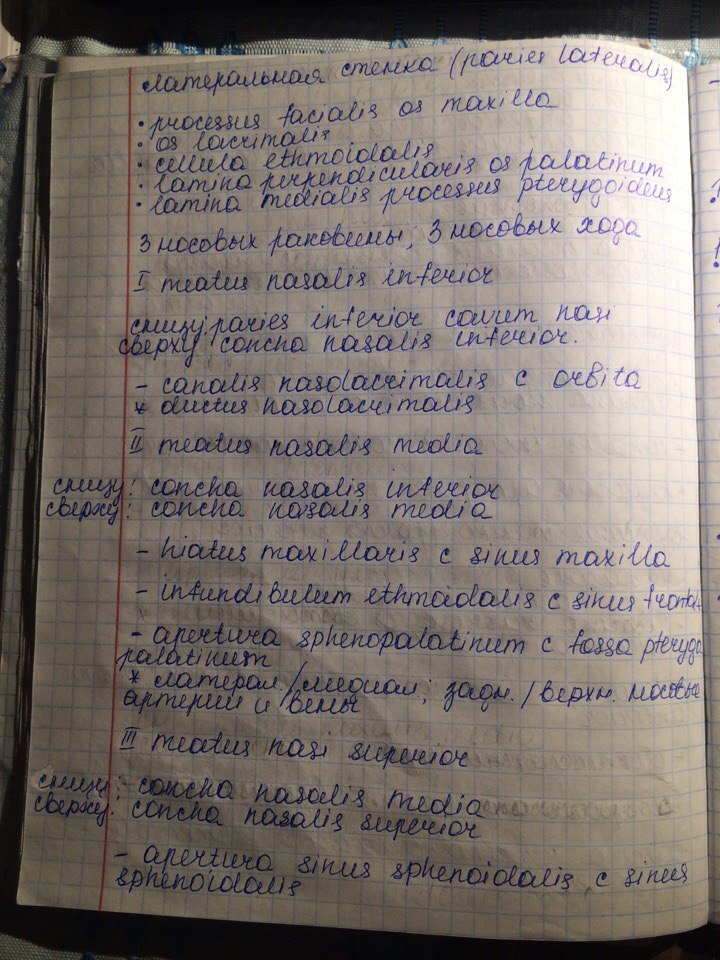 латеральная стенка (paries lateralis)
• processus facialis os maxilla
• os lacrimalis
• cellula ethmoidalis
• lamina perpendicularis os palatinum
• lamina medialis processus pterygoideus
3 носовых раковины; 3 носовых хода
I meatus nasalis inferior
снизу: paries inferior cavum nasi
сверху: concha nasalis inferior.
- canalis nasolacrimalis с orbita
* ductus nasolacrimalis
II meatus nasalis media
снизу: concha nasalis inferior
сверху: concha nasalis media
- hiatus maxillaris с sinus maxilla
- infundibulum ethmoidalis с sinus frontal
- apertura sphenopalatinum с fossa pterygo
palatinum
* латерал./медиал; задн./верхн. носовые
артерии и вены
III meatus nasi superior
снизу: - concha nasalis media
сверху: concha nasalis superior
- apertura sinus sphenoidalis с sinus
sphenoidalis